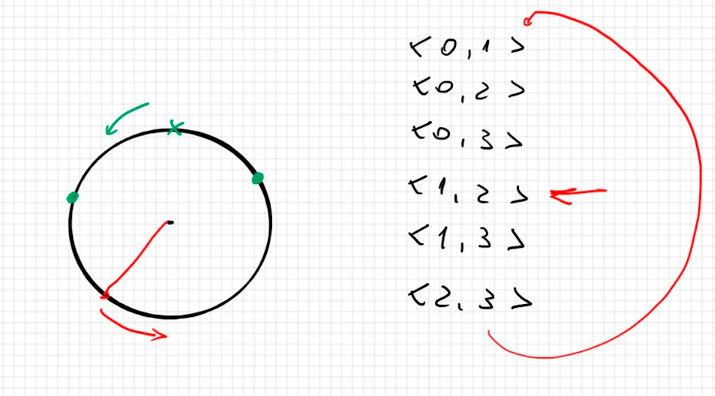 < 0, 1 >
< 0, 2 >
< 0, 3 >
< 1, 2 >
< 1, 3 >
< 2, 3 >